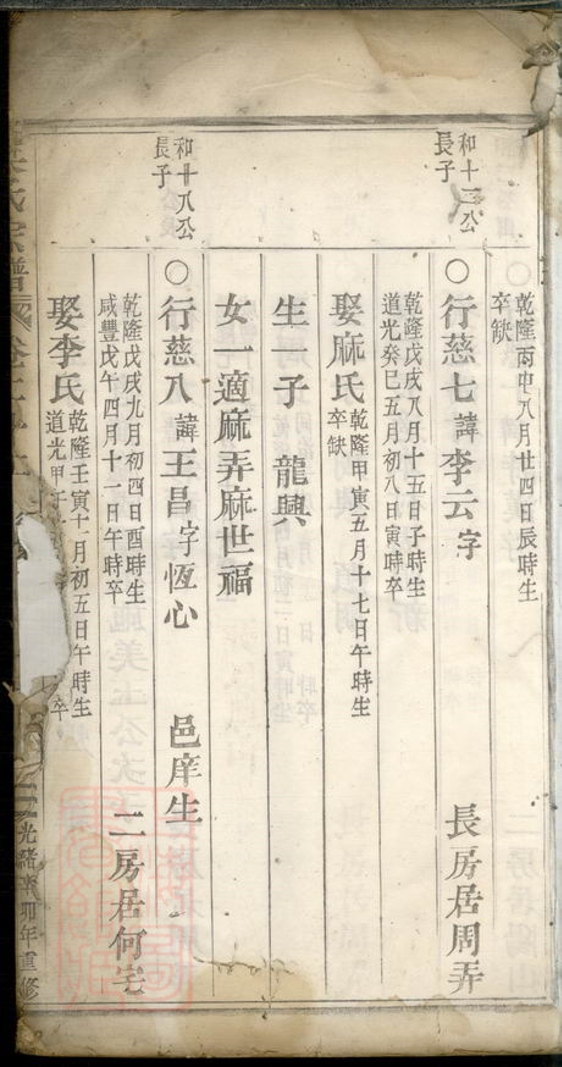 乾隆丙申八月廿四日辰時生
卒缺
和十三公
長子
○行慈七 諱李云字 長房居周弄
乾隆戊戌八月十五日子時生
道光癸巳五月初八日寅時卒
娶麻氏
乾隆甲寅五月十七日午時生
卒缺
生一子 龍興
女一適麻弄麻世福
和十八公
長子
○行慈八 諱王昌字恆心 邑庠生
乾隆戊戌九月初四日酉時生
咸豐戊午四月十一日午時卒
二房居何宅
娶李氏
乾隆壬寅十一月初五日午時生
道光甲
卒
氏宗譜
光緒辛卯年重修